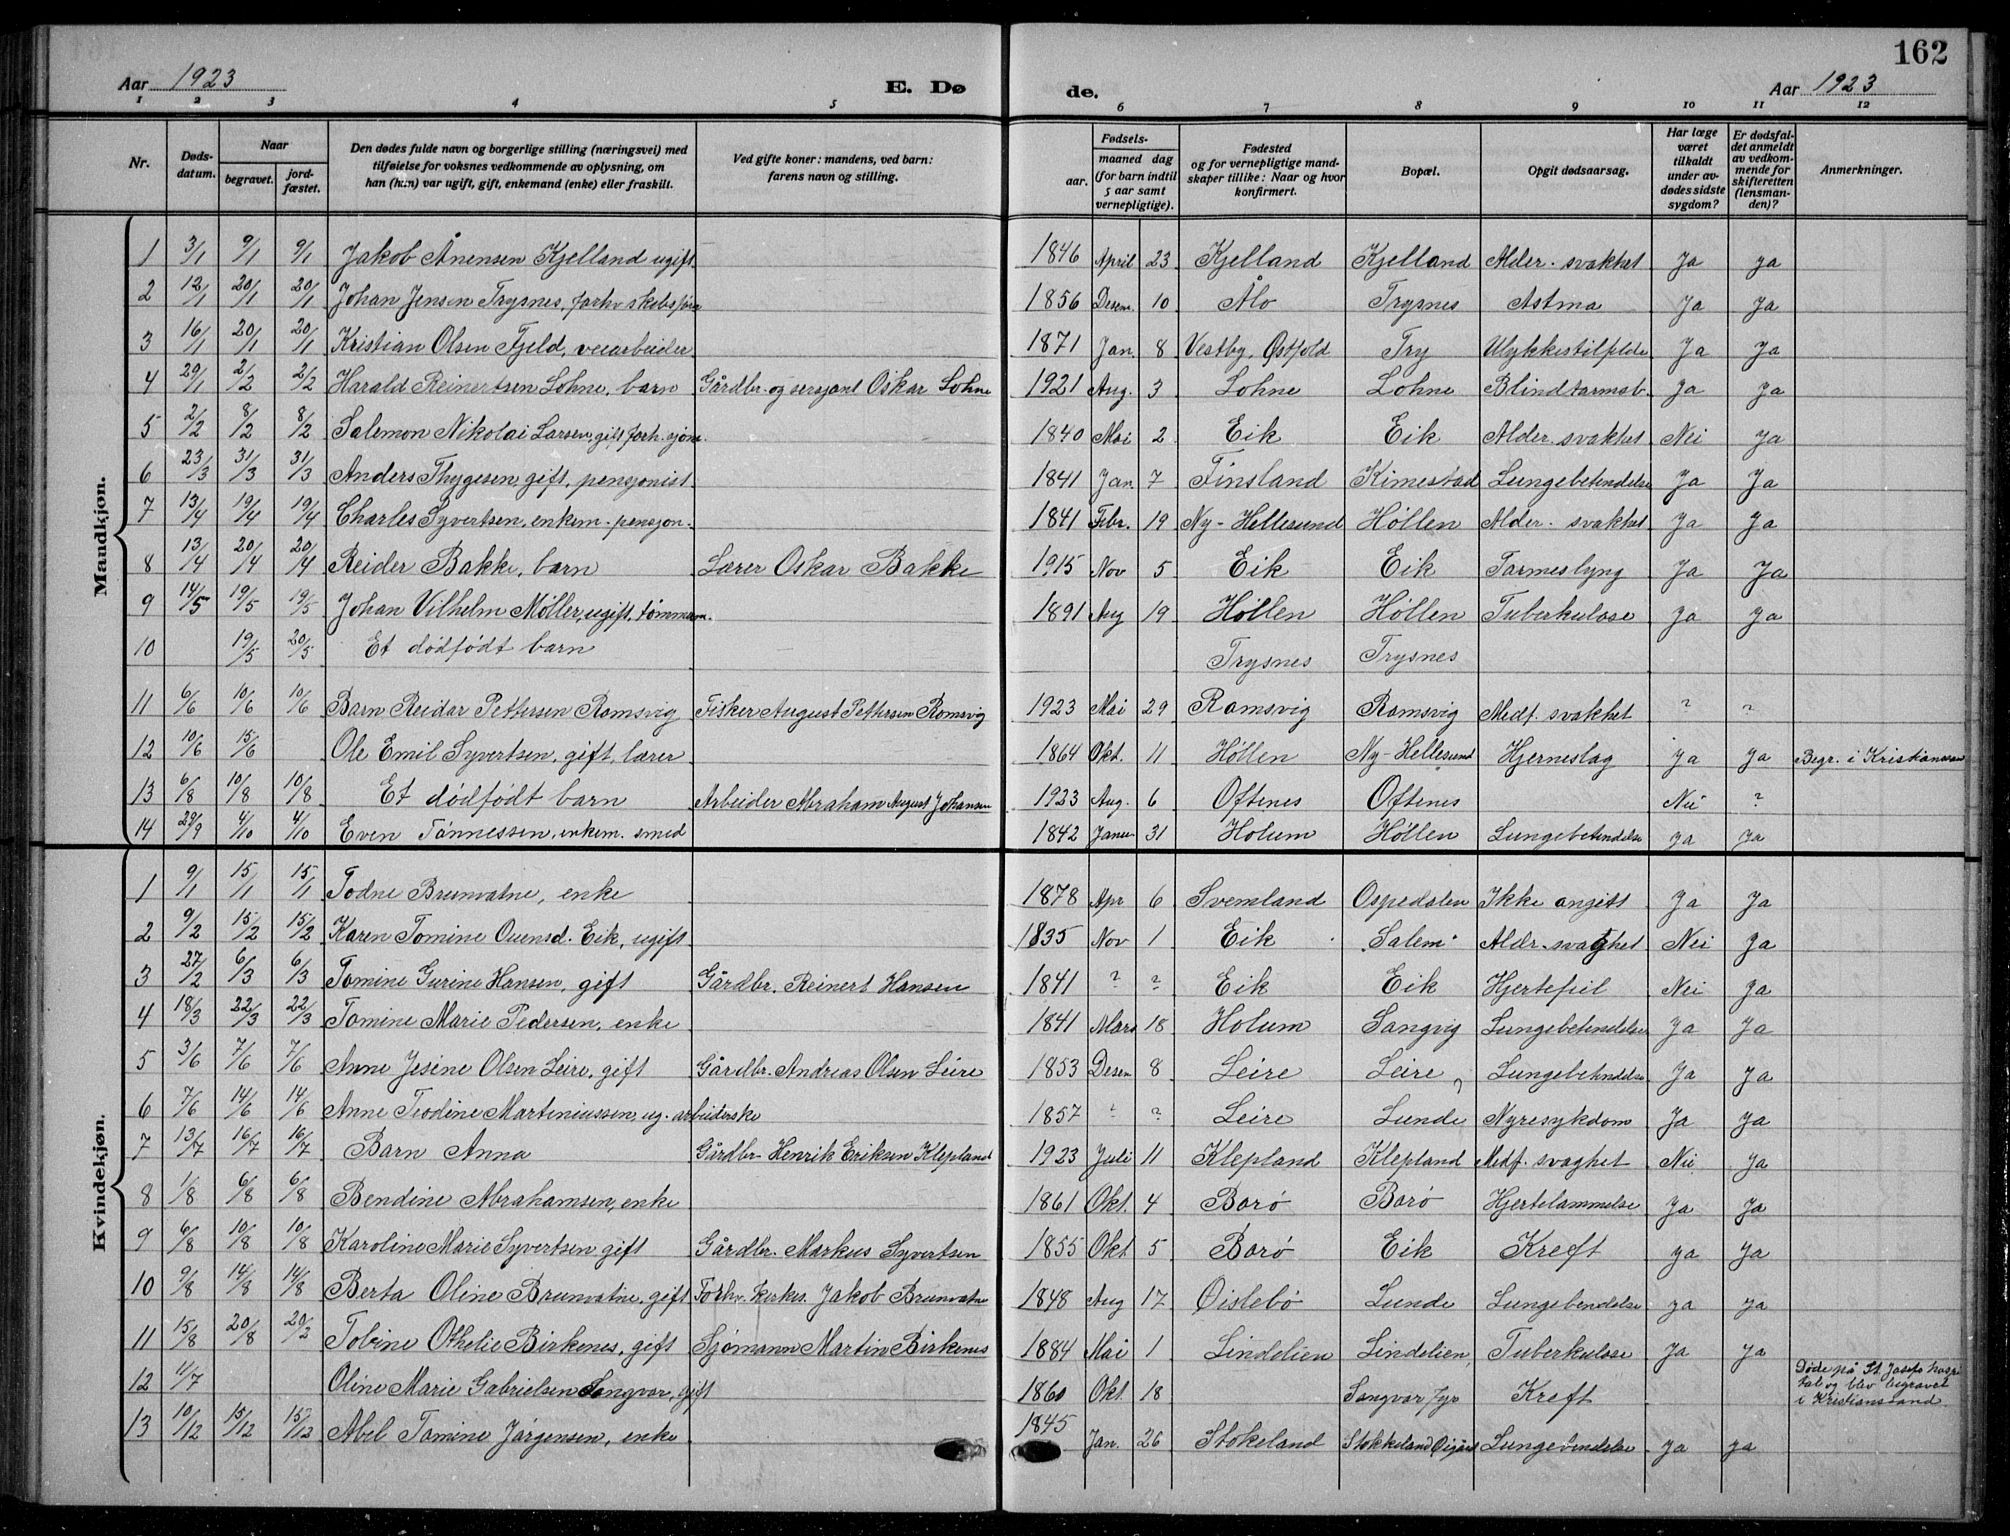 162
Aar 1923 E. Dø de. Aar 1923
1 2 3 4 5 6 7 8 9 10 11 12
Nr. Døds-datum. Naar begravet. jord-fæstet. Den dødes fulde navn og borgerlige stilling (næringsvei) med tilføielse for voksnes vedkommende av oplysning, om han (h:n) var ugift, gift, enkemand (enke) eller fraskilt. Ved gifte koner: mandens, ved barn: farens navn og stilling. Fødsels- aar. maaned dag (for barn indtil 5 aar samt vernepligtige). Fødested og for vernepligtige mandskaper tillike: Naar og hvor konfirmert. Bopæl. Opgit dødsaarsag. Har læge været tilkaldt under avdødes sidste sygdom? Er dødsfaldet anmeldt av vedkommende for skifteretten (lensmanden)? Anmerkninger.
Mandkjøn.
1 3/1 9/1 9/1 Jakob Ånensen Kjelland ugift. 1846 April 23 Kjelland Kjelland Alder. svakhet Ja Ja
2 12/1 20/1 20/1 Johan Jensen Trysnes, forhv skibsfører 1856 Desem. 10 Ålo Trysnes Astma Ja Ja
3 16/1 20/1 20/1 Kristian Olsen Fjeld, veiarbeider 1871 Jan. 8 Vestby, Østfold Try Ulykkestilfelde Ja Ja
4 29/1 2/2 2/2 Harald Reinertsen Lohne, barn Gårdbr. og sersjant Oskar Lohne 1921 Aug. 3 Lohne Lohne Blindtarmsb. Ja Ja
5 2/2 8/2 8/2 Salemon Nikolai Larsen, gift forh. sjøm. 1840 Mai 2 Eik Eik Alder. svakhet Nei Ja
6 23/3 31/3 31/3 Anders Thygesen gift, pensjonist 1841 Jan. 7 Finsland Kimestad Lungebetendelse Ja Ja
7 13/4 19/4 19/4 Charles Syvertsen, enkem. pensjon. 1841 Febr. 19 Ny-Hellesund Høllen Alder. svakhet Ja Ja
8 13/4 20/4 20/4 Reider Bakke, barn Lærer Oskar Bakke 1915 Nov 5 Eik Eik Tarmeslyng Ja Ja
9 14/5 19/5 19/5 Johan Vilhelm Møller, ugift, tømmerm. 1891 Aug 19 Høllen Høllen Tuberkulose Ja Ja
10 19/5 20/5 Et dödfödt barn Trysnes Trysnes
11 6/6 10/6 10/6 Barn Reidar Pettersen Romsvig Fisker August Pettersen Romsvig 1923 Mai 29 Ramsvig Romsvig Medf. svakhet ? ?
12 10/6 15/6 Ole Emil Syvertsen, gift, lærer 1864 Okt. 11 Høllen Ny-Hellesund Hjerneslag Ja Ja Begr. i Kristianssan
13 6/8 10/8 10/8 Et dödfödt barn Arbeider Abraham August Johansen 1923 Aug. 6 Oftenes Oftenes Nei ?
14 29/9 4/10 4/10 Even Tönnessen, enkem. smed 1842 Januar 31 Holum Höllen Lungebetendelse Ja Ja
Kvindekjøn.
1 9/1 15/1 15/1 Todne Brunvatne, enke 1878 Apr 6 Svemland Ospedalen Ikke angitt Ja Ja
2 9/2 15/2 15/2 Karen Tomine Ouensd. Eik, ugift 1835 Nov 1 Eik Salem Aldr. svaghet Nei Ja
3 27/2 6/3 6/3 Tomine Gurine Hansen, gift Gårdbr. Reinert Hansen 1841 ? ? Eik Eik Hjertefeil Nei Ja
4 18/3 22/3 22/3 Tomine Marie Pedersen, enke 1841 Mars 18 Holum Sangvig Lungebetendelse Ja Ja
5 3/6 7/6 7/6 Anne Jesine Olsen Leire, gift Gårdbr. Andreas Olsen Leire 1853 Desem 8 Leire Leire Lungebetendelse Ja Ja
6 7/6 14/6 14/6 Anne Teodine Martiniussen, ug. arbeiderske 1857 ? ? Leire Lunde Nyresykdom Ja Ja
7 13/7 16/7 16/7 Barn Anna Gårdbr. Henrik Eriksen Klepland 1923 Juli 11 Klepland Klepland Medf. svaghet Nei Ja
8 1/8 6/8 6/8 Bendine Abrahamsen, enke 1861 Okt. 4 Borø Borø Hjertelammelse Ja Ja
9 6/8 10/8 10/8 Karoline Marie Syvertsen gift Gårdbr. Markus Syvertsen 1855 Okt 5 Borø Eik Kreft Ja Ja
10 9/8 14/8 14/8 Berta Oline Brunvatne, gift Forhv. kerkes. Jakob Brunvatne 1848 Aug 17 Øislebø Lunde Lungebendelse Ja Ja
11 15/8 20/8 20/2 Tobine Othelie Birkenes, gift Sjømann Martin Birkenes 1884 Mai 1 Lindelien Lindelien Tuberkulose Ja Ja
12 11/7 Oline Marie Gabrielsen Songvar, gift 1860 Okt. 18 Songvar fyr Kreft Døde på St. Josefs hospital og blev begravet i Kristianssand
13 10/12 15/12 15/12 Abel Tomine Jørgensen, enke 1845 Jan. 26 Stokeland Stokkeland Øigard Lungebendelse Ja Ja